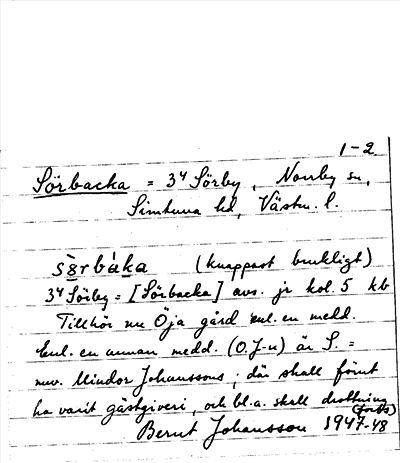 1-2.
Sörbacka = 3⁴ Sörby, Norrby sn,
Simtuna hd, Västm. l.
sèrbáka (knappast brukligt)
3⁴ Sörby = [Sörbacka] avs. jr kol. 5 kb
Tillhör nu Öja gård enl. en medd.
Enl. en annan medd. (O.J-n) är S. =
nuv. Mindor Johanssons; där skall förut
ha varit gästgiveri, och bl.a. skall drottning
(forts)
Bernt Johansson 1947-48